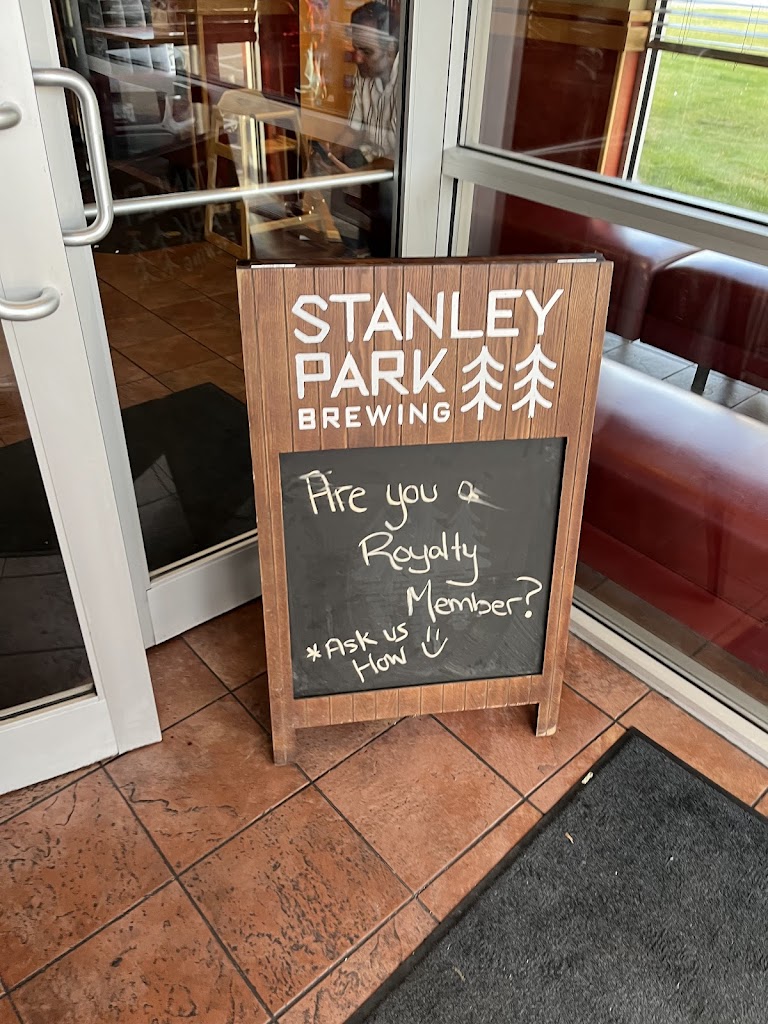 STANLEY
PARK
BREWING
Are you a
Royalty
Member?
*Ask us
How